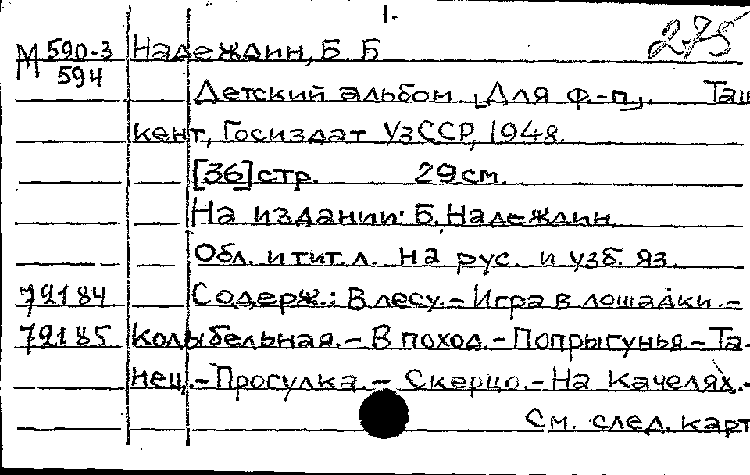 1.
275
М 590-3 Надеждин, Б. Б
594
Детский альбом [Для ф.-п]. Таш
кент, Госиздат УзССР, 1948.
[36] стр. 29 см.
На издании: Б. Надеждин.
Обл. и тит. л. на рус. и узб. яз.
79184 Содерж.: В лесу.- Игра в лошадки.-
79185 Колыбельная.- В поход.- Попрыгунья.- Та-
нец.- Прогулка.- Скерцо.- На качелях.-
См. след. карт